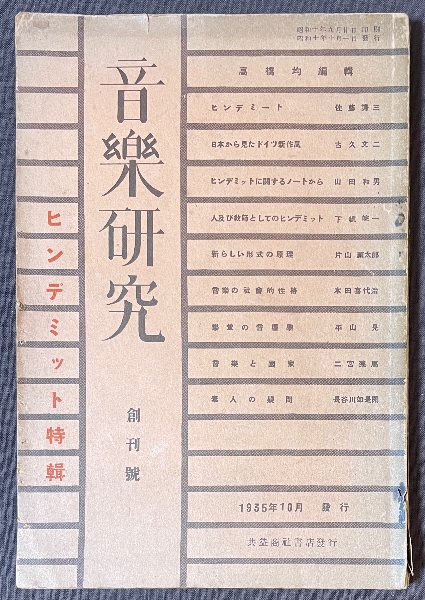 昭和十年九月廿日印刷
昭和十年十月一日發行
音樂硏究
創刊號
ヒンデミット特輯
高橋均編輯
ヒンデミート 佐藤謙三
日本から見たドイツ新作風 古久文二
ヒンデミットに關するノートから 山田和男
人及び敎師としてのヒンデミット 下總皖一
新らしい形式の原理 片山頴太郎
音樂の社會的性格 本田喜代治
音樂と國家
素人の疑問 長谷川如是閑
1935年10月 發行
共益商社書店發行